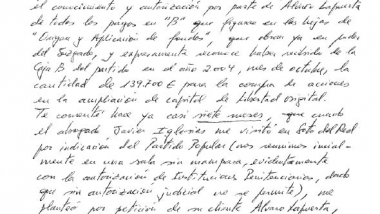 el conocimiento y autorización por parte de Alvaro Lapuerta
de todos los pagos en "B" que figuran en las hojas de
"Origen y Aplicación de fondos" que obran ya en poder
del Juzgado, y expresamente reconoce haber recibido de la
Caja B del partido en el año 2004, mes de octubre, la
cantidad de 139.700 € para la compra de acciones
en la ampliación de capital de libertad digital.
Te comenté hace ya casi siete meses, que cuando
el abogado Javier Iglesias me visitó en Soto del Real
por indicación del Partido Popular (nos reunimos inicial-
mente en una sala sin mampara, evidentemente
con la autorización de Instituciones Penitenciarias, dado
que sin autorización judicial no se permite), me
planteó por petición de su cliente Alvaro Lapuerta,